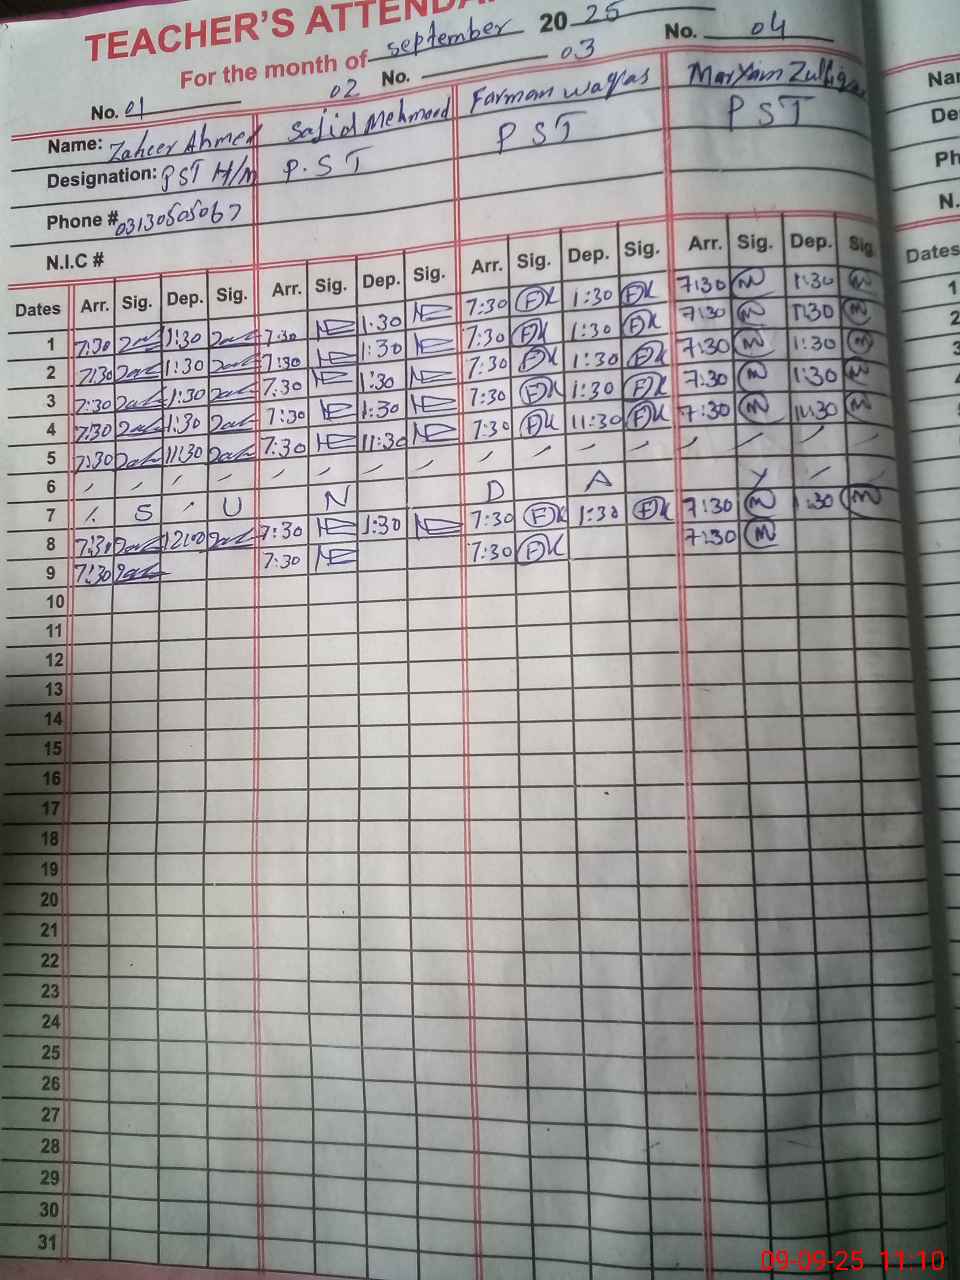 TEACHER'S ATTENDA
For the month of september 2025
No. 01 02 No. 03 No. 04
Name: Zaheer Ahmed Sajid Mehmood Farman Waqas Maryam Zulfiqar
Designation: PST H/M P.ST PST PST
Phone # 03130505067
N.I.C #
Dates Arr. Sig. Dep. Sig. Arr. Sig. Dep. Sig. Arr. Sig. Dep. Sig. Arr. Sig. Dep. Sig.
1 7:30 1:30 7:30 1:30 7:30 FK 1:30 FK 7:30 M 1:30 M
2 7:30 1:30 7:30 1:30 7:30 FK 1:30 FK 7:30 M 1:30 M
3 7:30 1:30 7:30 1:30 7:30 FK 1:30 FK 7:30 M 1:30 M
4 7:30 1:30 7:30 1:30 7:30 FK 1:30 FK 7:30 M 1:30 M
5 7:30 11:30 7:30 11:30 7:30 FK 11:30 FK 7:30 M 11:30 M
6
7 S U N D A Y
8 7:30 12:00 7:30 1:30 7:30 FK 1:30 FK 7:30 M 1:30 M
9 7:30 7:30 7:30 FK 7:30 M
10
11
12
13
14
15
16
17
18
19
20
21
22
23
24
25
26
27
28
29
30
31
Nar
De
Ph
N.
Dates
1
2
3
09-09-25 11:10